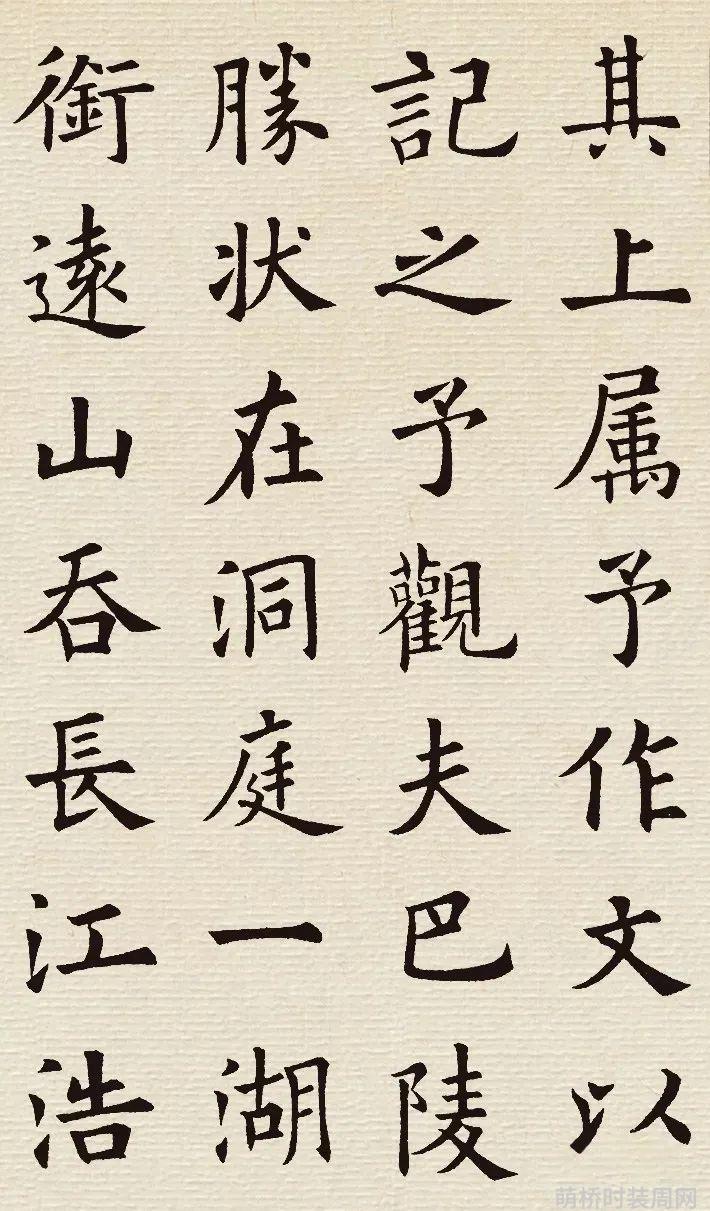 其上属予作文以
記之予觀夫巴陵
勝状在洞庭一湖
銜遠山吞長江浩
萌桥时装周网